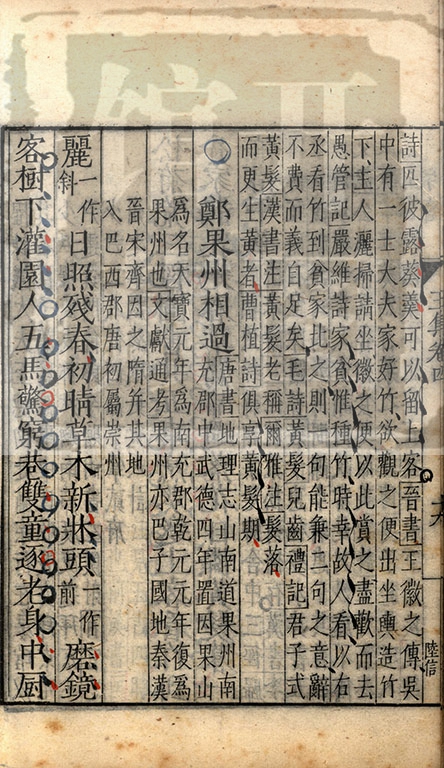 詩匹彼露葵羹可以留上客晉書王徽之傳吳
中有一士大夫家好竹欲觀之便出坐輿造竹
下主人灑掃請坐徽之便以此賞之盡歡而去
愚管記嚴維詩家貧惟種竹時幸故人看以右
丞看竹到貧家比之則一句能兼二句之意辭
不費而義自足矣毛詩黃髮兒齒禮記君子式
黃髮漢書注黃髮老稱爾雅注髮落
而更生黃者曹植詩俱享黃髮期
鄭果州相過唐書地理志山南道果州南
充郡中武德四年置因果山
為名天寶元年為南充郡乾元元年復為
果州也文獻通考果州亦巴子國地秦漢
晉宋齊因之隋并其地
入巴西郡唐初屬崇州
麗一作斜日照殘春初晴草木新牀頭一作前磨鏡
客樹下灌園人五馬驚窮巷雙童逐老身中厨
陸信